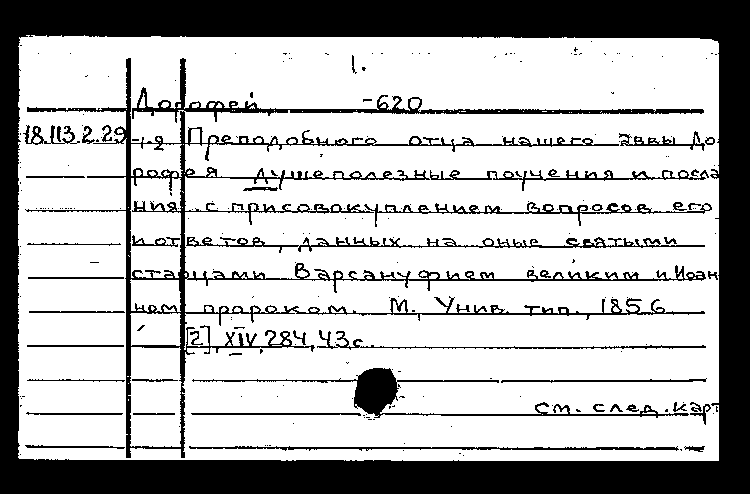 1.
Дорофей, -620
18.113.2.29 -,я Преподобного отца нашего аввы До
рофея душеполезные поучения и посла
ния с присовокуплением вопросов его
и ответов, данных на оные святыми
старцами Варсануфием великим и Иоан
ном пророком. М., Унив. тип., 1856
[2], XIV, 284, 43 с.
см. след. карт